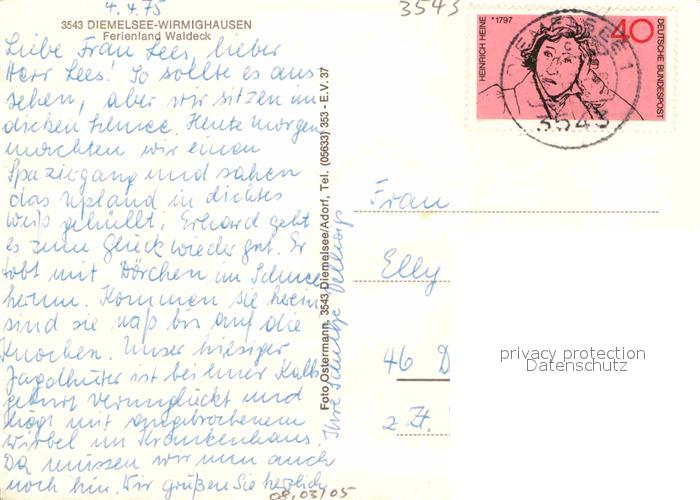 4.4.75
3543 DIEMELSEE-WIRMIGHAUSEN
Ferienland Waldeck
Liebe Frau Lees, lieber
Herr Lees! So sollte es aus
sehen, aber wir sitzen im
dicken Schnee. Heute morgen
machten wir einen
Spaziergang und sahen
das Upland in dichtes
Weiß gehüllt. Erhard geht
es zum Glück wieder gut. Er
tobt mit Dörchen im Schnee
herum. Kommen sie herein
sind sie naß bis auf die
Knochen. Unser hiesiger
Jagdhüter ist bei einer Kalbs
geburt verunglückt und
liegt mit angebrochenem
Wirbel im Krankenhaus.
Da müssen wir nun auch
noch hin. Wir grüßen Sie herzlich
Ihre Schultze
Foto Ostermann, 3543 Diemelsee/Adorf, Tel. (05633) 353 - E.V. 37
3543
HEINRICH HEINE * 1797
40
DEUTSCHE BUNDESPOST
DIEMELSEE 1
3543
Frau
Elly
46 D
z Zt.
privacy protection
Datenschutz
08.03/05